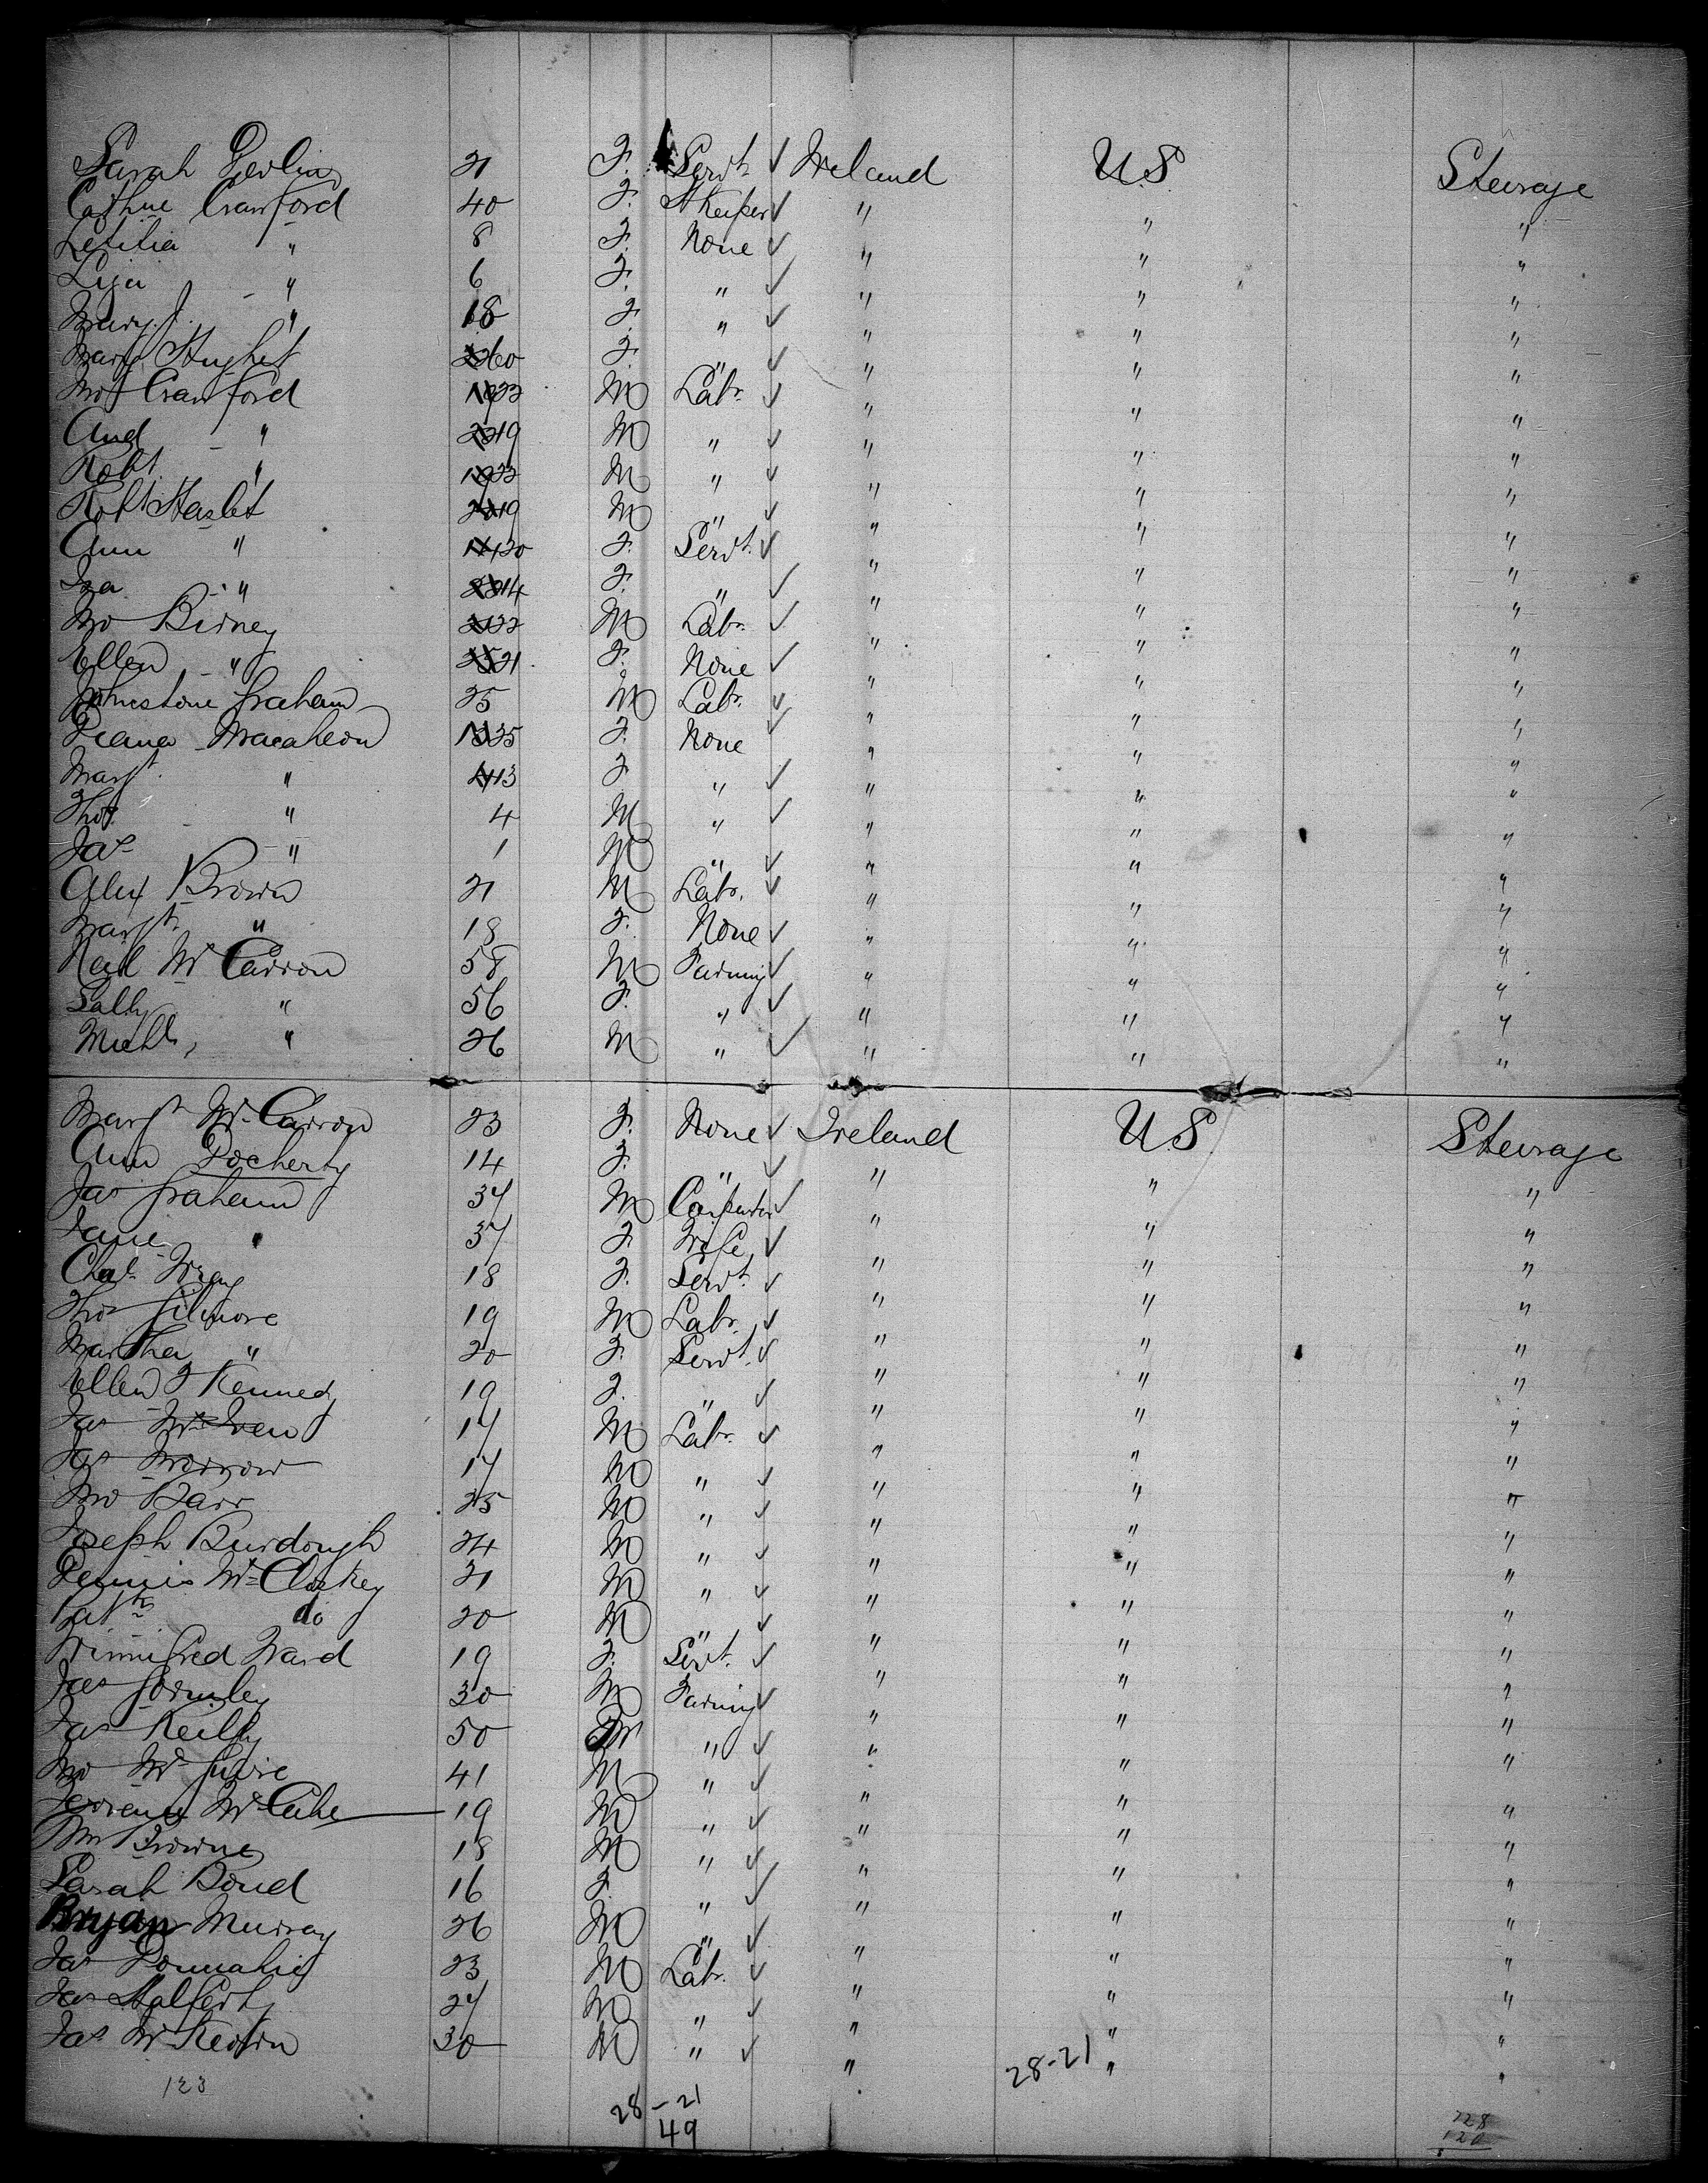 Sarah Devlin 21 F. Servt. ✓ Ireland U.S. Steerage
Cathne Crawford 40 F. H Keeper ✓ " " "
Letitia " 8 F. None ✓ " " "
Liza " 6 F. " ✓ " " "
Mary J. " 18 F. " ✓ " " "
Mary Hughes 60 F. " ✓ " " "
Crawford 22 M Labr. ✓ " " "
And " 19 M " ✓ " " "
Robt " 22 M " ✓ " " "
Robt Haslet 19 M " ✓ " " "
Ann " 20 F. Servt. ✓ " " "
Iza " 14 F. " ✓ " " "
Jno Birney 22 M Labr. ✓ " " "
Ellen " 21 F. None ✓ " " "
Johnstone Graham 25 M Labr. ✓ " " "
35 F. None ✓ " " "
Margt. " 13 F " ✓ " " "
Thos " 4 M " ✓ " " "
Jas " 1 M " ✓ " " "
Alex Brown 21 M Labr. ✓ " " "
Margt " 18 F. None ✓ " " "
Neil McCarron 58 M Farming ✓ " " "
Sally " 56 F. " ✓ " " "
Michl, " 26 M " ✓ " " "
Margt McCarron 23 F. None ✓ Ireland U.S. Steerage
Ann Docherty 14 F. " ✓ " " "
Jas Graham 37 M Carpenter ✓ " " "
Jane " 37 F Wife ✓ " " "
Wray 18 F. Servt. ✓ " " "
Thos Gilmore 19 M Labr. ✓ " " "
Martha " 20 F. Servt. ✓ " " "
Ellen J Kennedy 19 F. " ✓ " " "
Jas 17 M Labr. ✓ " " "
Jas Morrow 17 M " ✓ " " "
Jno Barr 25 M " ✓ " " "
Joseph Burdough 24 M " ✓ " " "
Dennis McCloskey 21 M " ✓ " " "
Patk do 20 M " ✓ " " "
Winnifred Ward 19 F. Servt. ✓ " " "
Jas Gormley 30 M Farming ✓ " " "
Jas Reilly 50 M " ✓ " " "
Jno McGuire 41 M " ✓ " " "
Terrence McCabe 19 M " ✓ " " "
Wm Browne 18 M " ✓ " " "
Sarah Bond 16 F. " ✓ " " "
Bryan Murray 26 M " ✓ " " "
Jas 23 M Labr. ✓ " " "
Jas 27 M " ✓ " " "
Jas 30 M " ✓ " " "
28-21
123
28-21
49
128
120